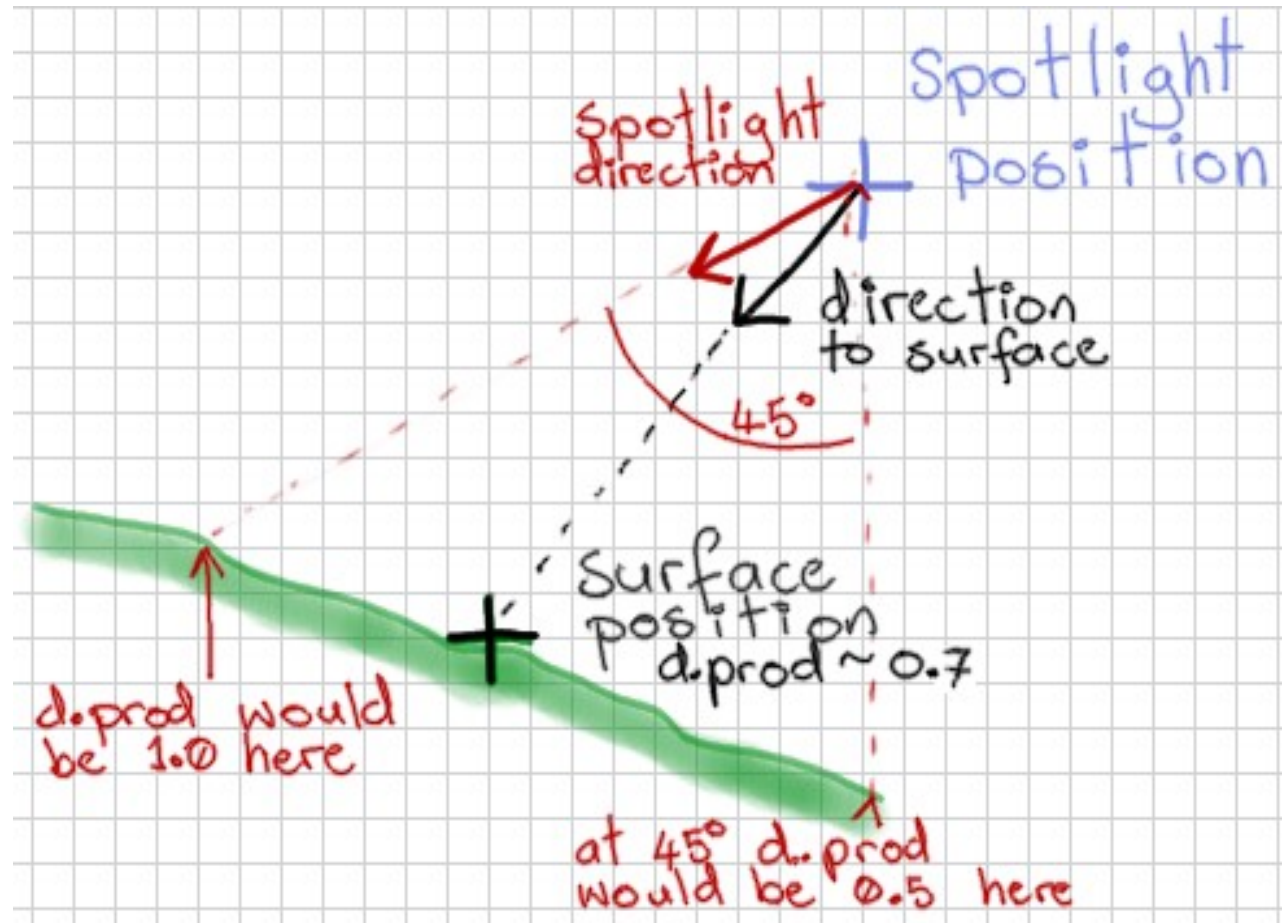 Spotlight
position
spotlight
direction
direction
to surface
45°
surface
position
d.prod ~ 0.7
d.prod would
be 1.0 here
at 45° d..prod
would be 0.5 here